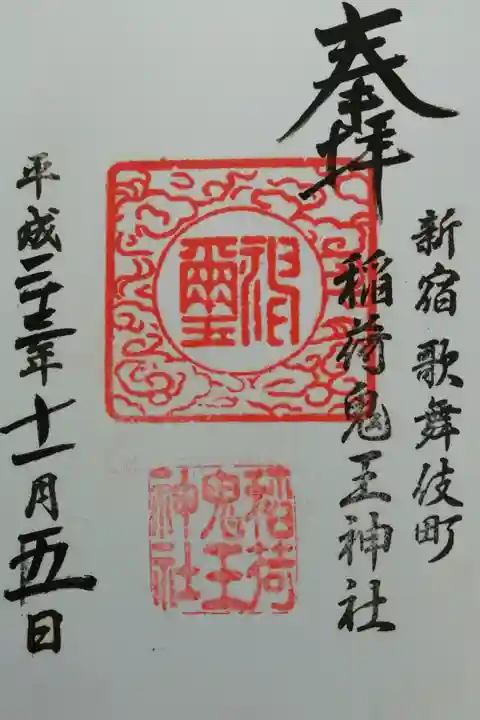 奉拝
新宿歌舞伎町
稲荷鬼王神社
稲荷
鬼王
神社
平成二十三年十一月五日